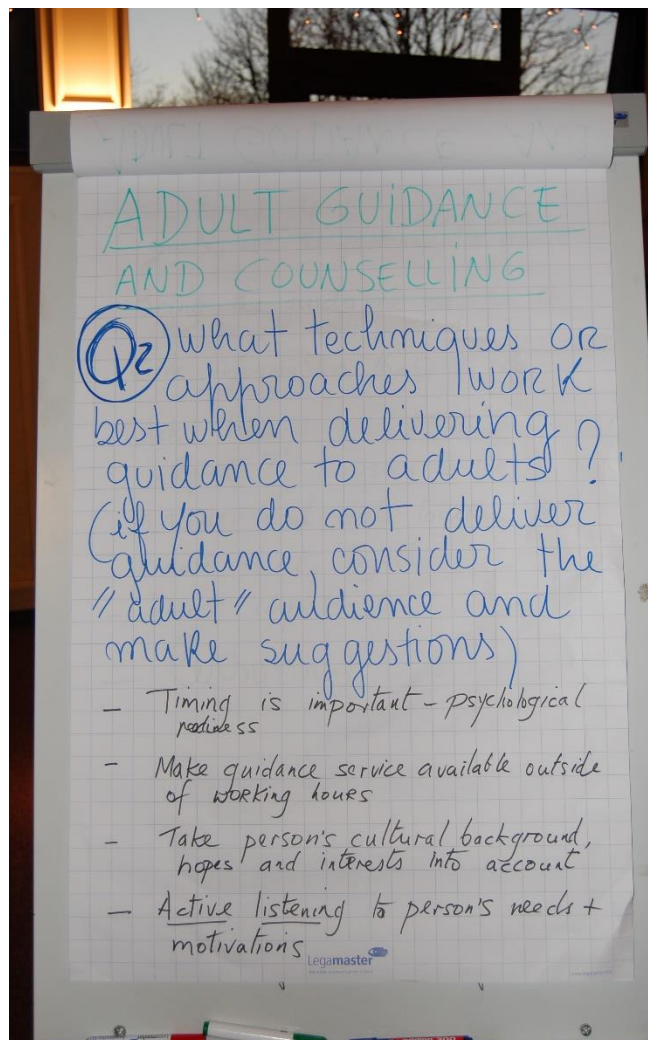 ADULT GUIDANCE
AND COUNSELLING
Q2 What techniques or
approaches work
best when delivering
guidance to adults?
(if you do not deliver
guidance, consider the
"adult" audience and
make suggestions)
- Timing is important - psychological
readiness
- Make guidance service available outside
of working hours
- Take person's cultural background,
hopes and interests into account
- Active listening to person's needs +
motivations
Legamaster